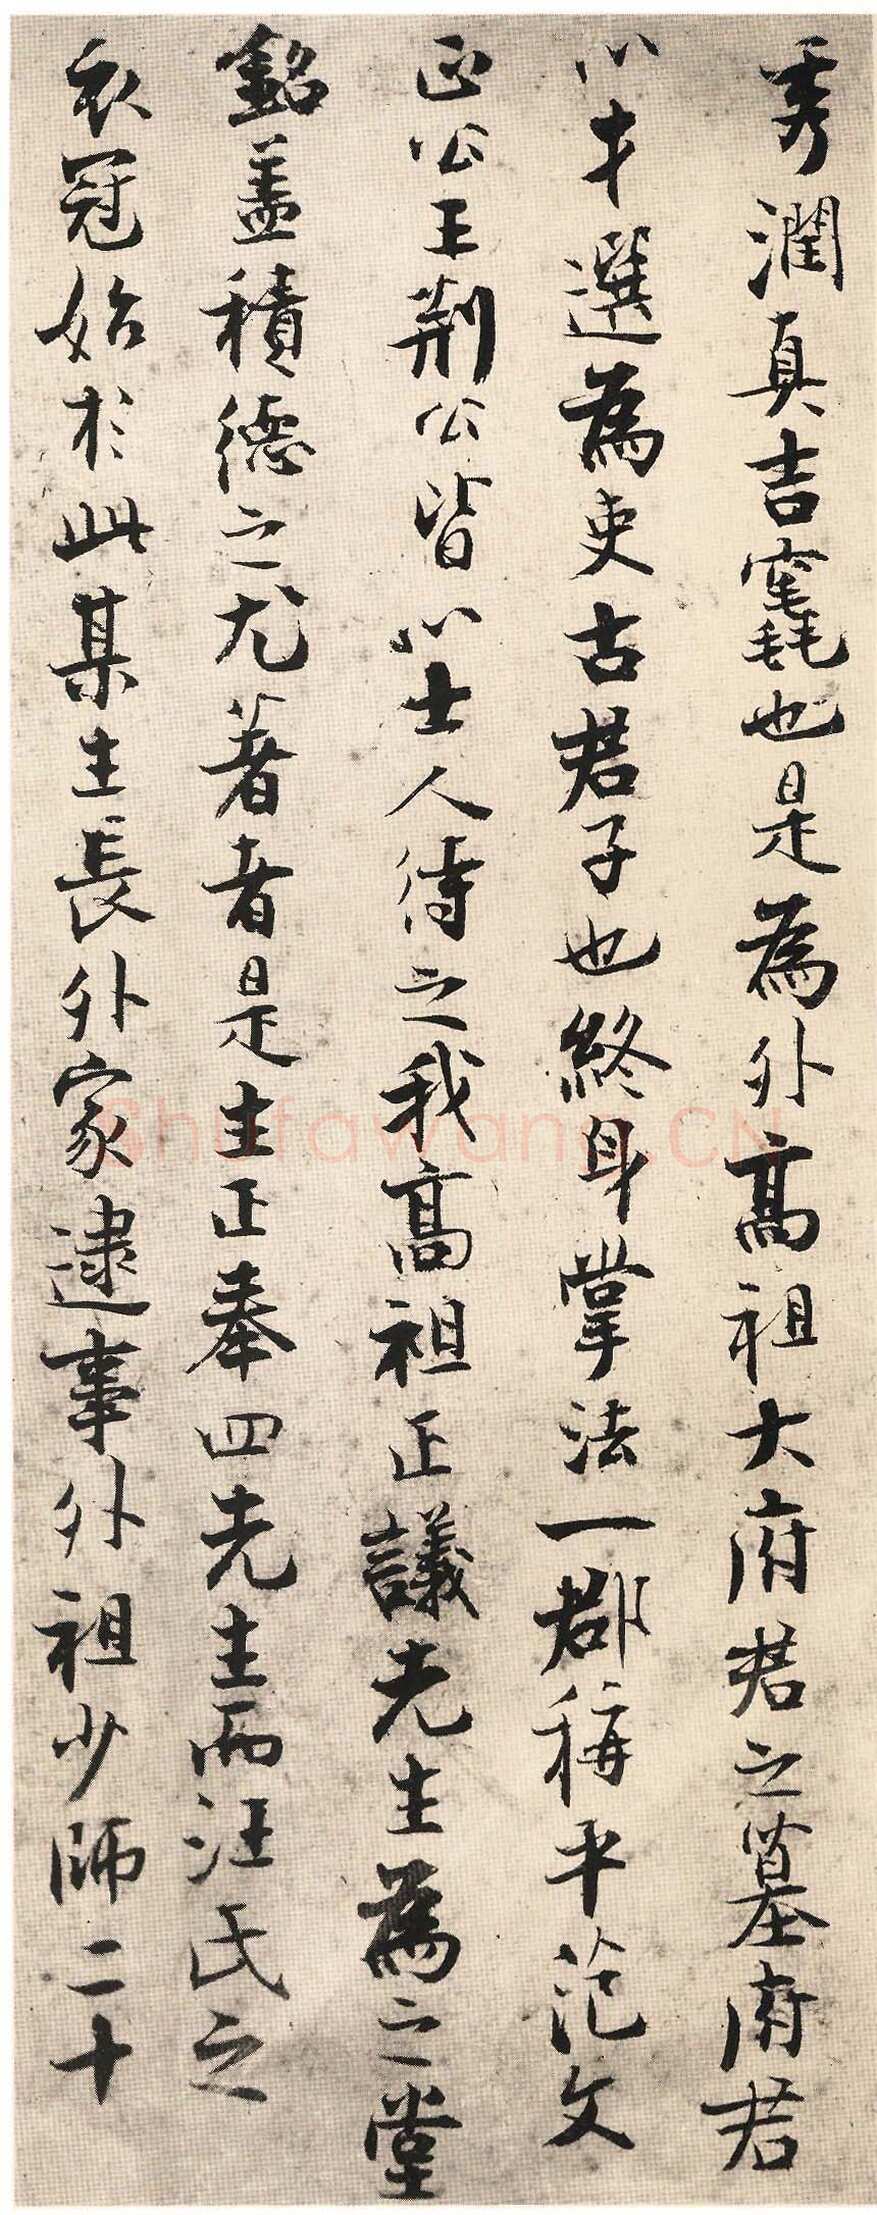 秀潤真吉竁也是為外高祖大府君之墓府君
以才選為吏古君子也終身掌法一郡稱平范文
正公王荊公皆以士人待之我高祖正議先生為之堂
銘盖積德之尤著者是生正奉四先生而汪氏之
衣冠始於此某生長外家逮事外祖少師二十
Shufawang.CN